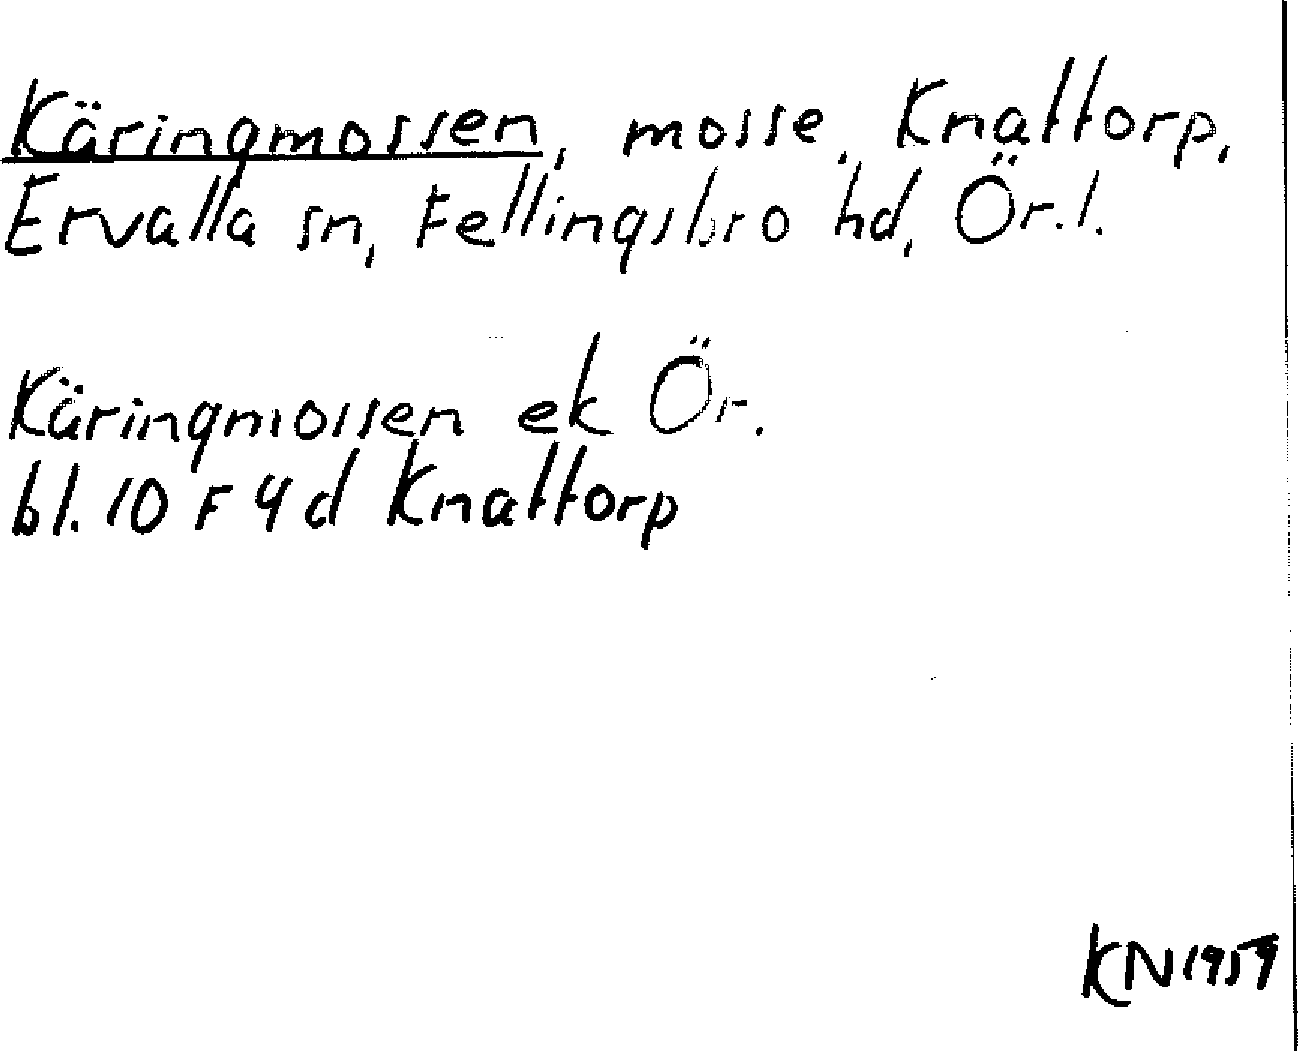 Käringmossen, mosse, Knattorp,
Ervalla sn, Fellingsbro hd, Ör. l.
Käringmossen ek Ör.
bl. 10 F 4 d Knattorp
KN 1959